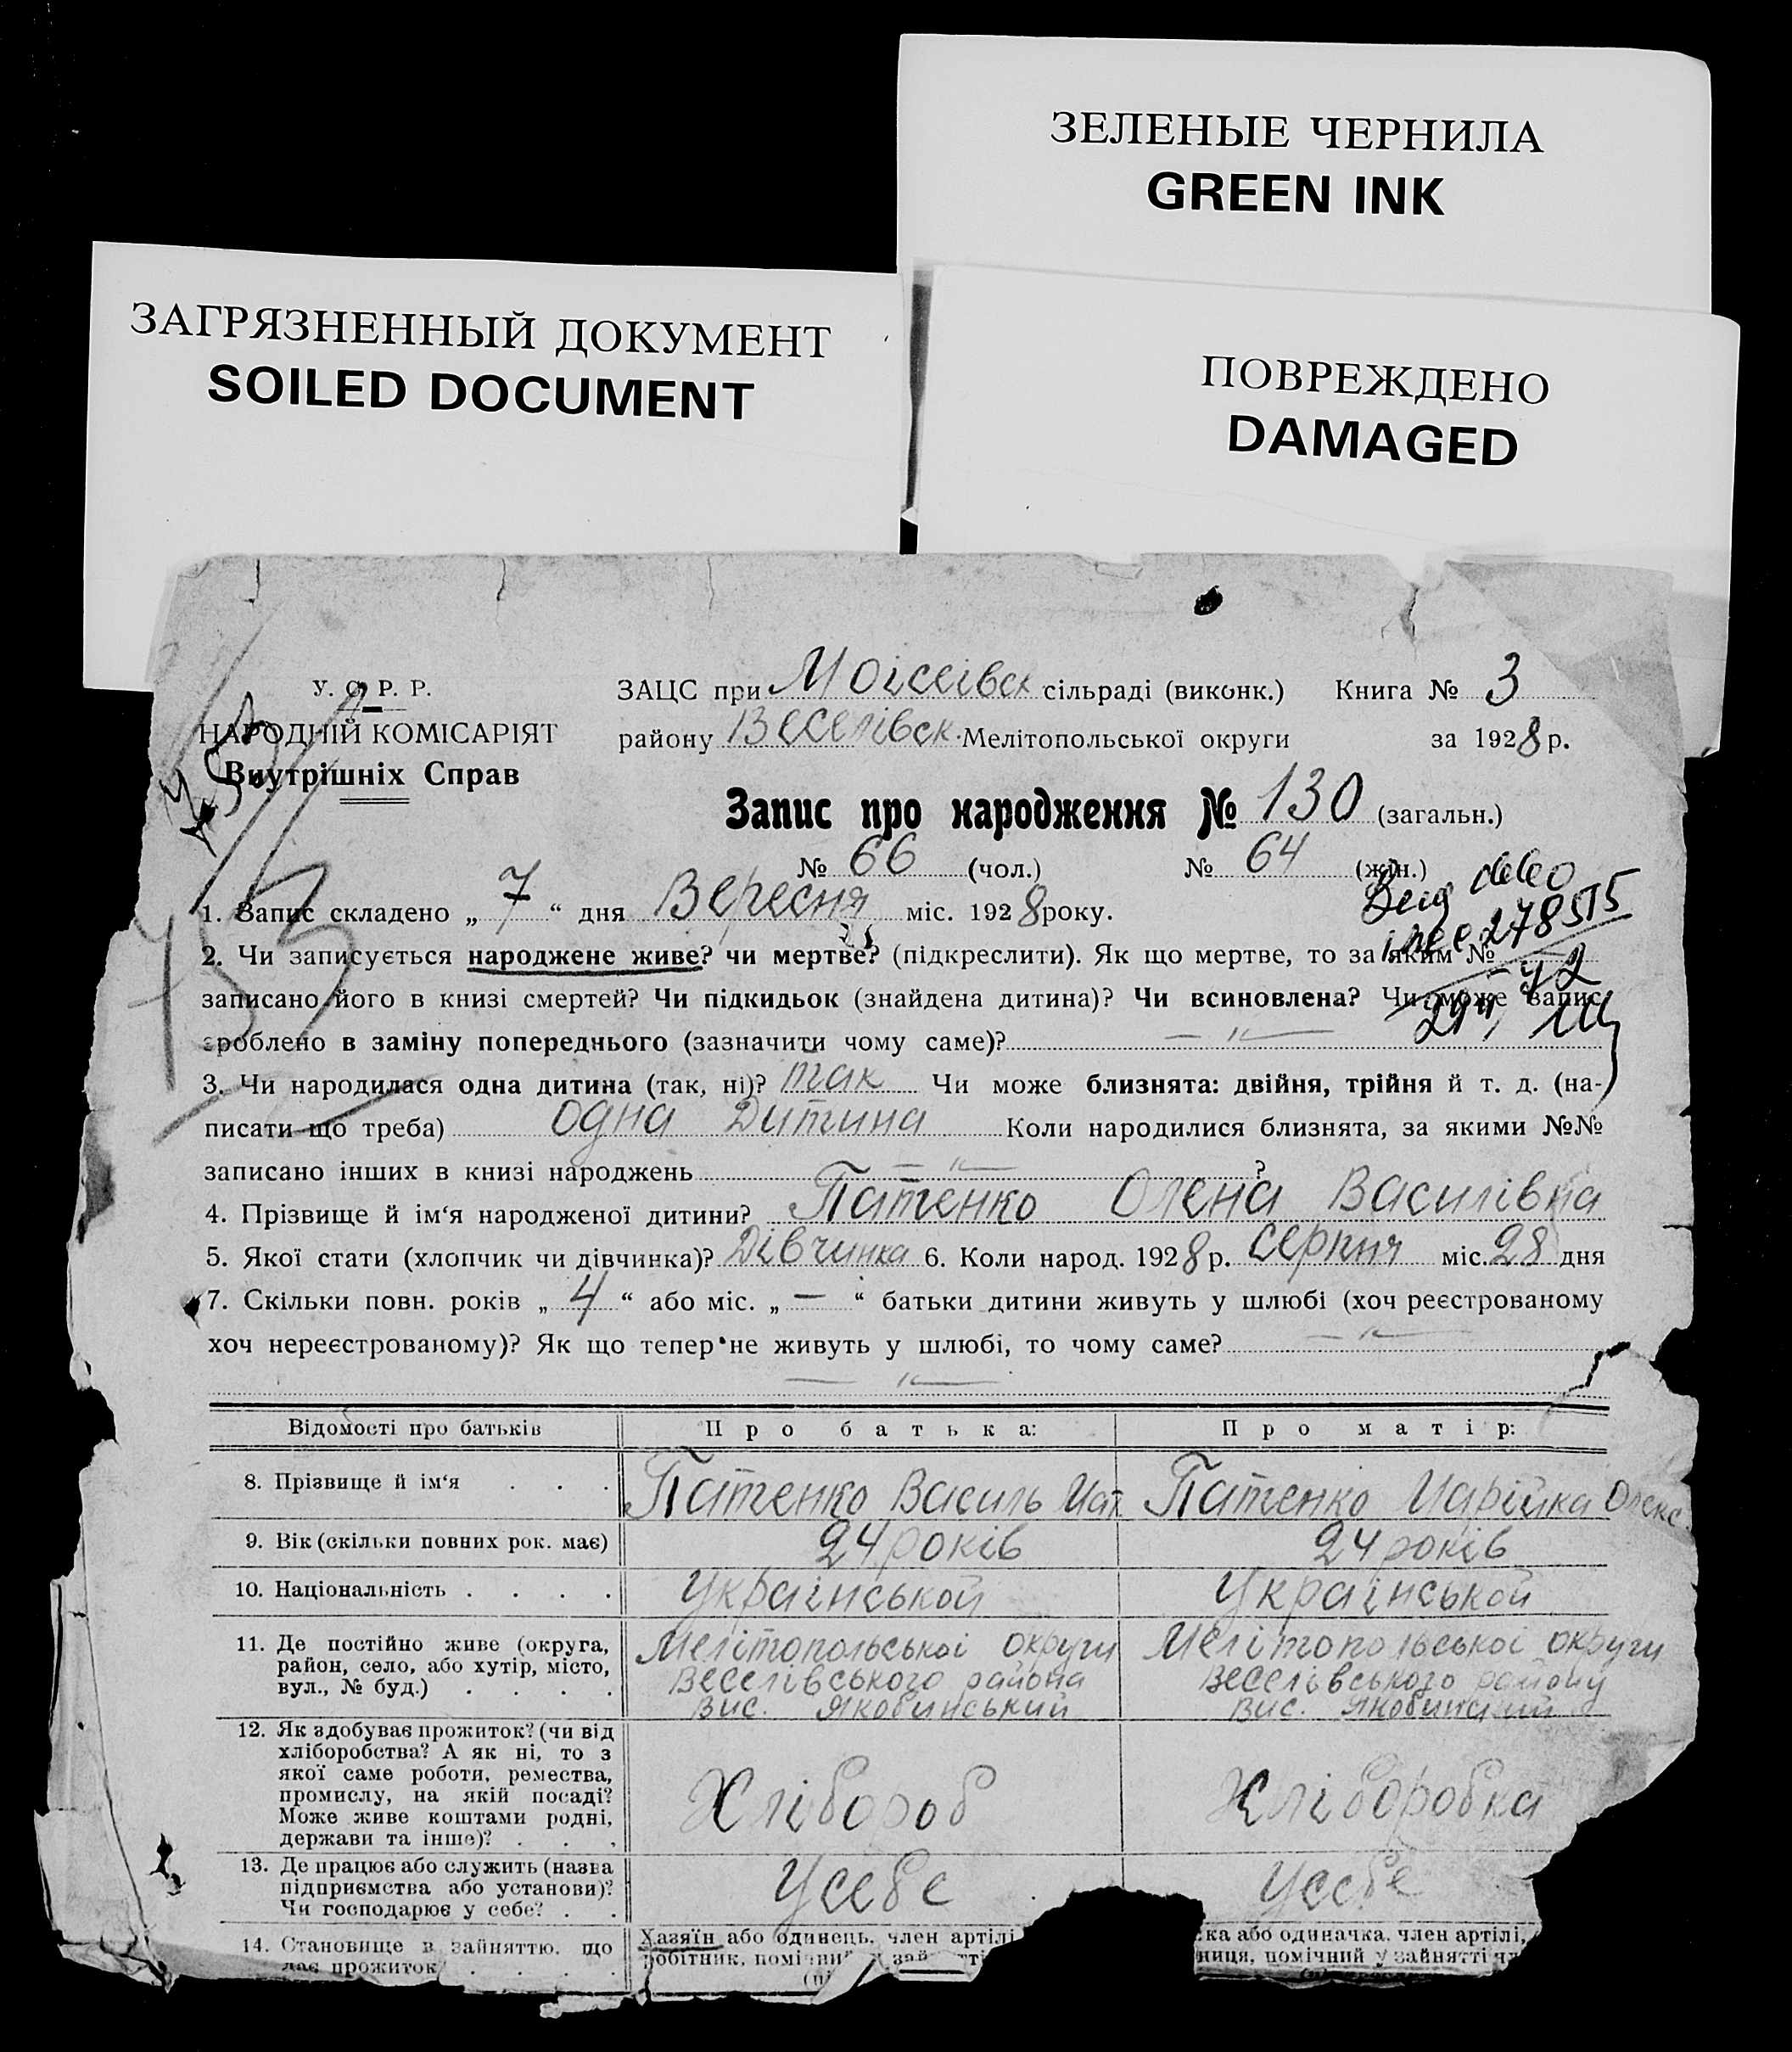 ЗЕЛЕНЫЕ ЧЕРНИЛА
GREEN INK
ЗАГРЯЗНЕННЫЙ ДОКУМЕНТ
SOILED DOCUMENT
ПОВРЕЖДЕНО
DAMAGED
У. С. Р. Р.
НАРОДНІЙ КОМІСАРІЯТ
Внутрішніх Справ
ЗАЦС при Моісеівск сільраді (виконк.) Книга № 3
району Веселівск. Мелітопольської округи за 1928 р.
Запис про народження № 130 (загальн.)
№ 66 (чол.) № 64 (жін.)
1. Запис складено „ 7 “ дня Вересня міс. 1928 року.
278515
2. Чи записується народжене живе? чи мертве? (підкреслити). Як що мертве, то за яким №
записано його в книзі смертей? Чи підкидьок (знайдена дитина)? Чи всиновлена? Чи може запис
зроблено в заміну попереднього (зазначити чому саме)? — " —
3. Чи народилася одна дитина (так, ні)? так Чи може близнята: двійня, трійня й т. д. (на-
писати що треба) одна дитина Коли народилися близнята, за якими №№
записано інших в книзі народжень — " — ?
4. Прізвище й ім‘я народженої дитини? Патенко Олена Василівна
5. Якої стати (хлопчик чи дівчинка)? Дівчинка 6. Коли народ. 1928 р. серпня міс. 28 дня
7. Скільки повн. років „ 4 “ або міс. „ — “ батьки дитини живуть у шлюбі (хоч реєстрованому
хоч нереєстрованому)? Як що тепер не живуть у шлюбі, то чому саме? — " —
— " —
Відомості про батьків Про батька: Про матір:
8. Прізвище й ім‘я . . . Патенко Василь Патенко Марійка Олекс.
9. Вік (скільки повних рок. має) 24 років 24 років
10. Національність . . . . Української Української
11. Де постійно живе (округа, район, село, або хутір, місто, вул., № буд.) . . . .
Мелітопольської округи Мелітопольської округи
Веселівського района Веселівського району
Вис. Якобинський Вис. Якобинский
12. Як здобуває прожиток? (чи від
хліборобства? А як ні, то з
якої саме роботи, ремества,
промислу, на якій посаді?
Може живе коштами родні,
держави та інше)? . . .
Хлібороб Хліборобка
13. Де працює або служить (назва
підприємства або установи)?
Чи господарює у себе? . .
Усебе Усебе
14. Становище в зайняттю, що
дає прожиток . . . .
Хазяїн або одинець, член артілі
робітник,
ка або одиначка, член артілі,
ниця, помічний у зайнятті